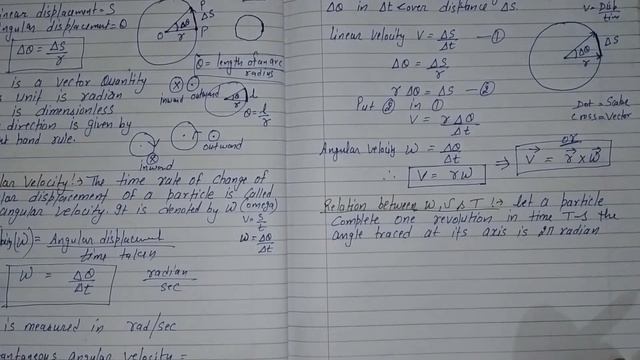 inear displacement = S
ngular displacement = θ
Δθ = ΔS/r
is a vector Quantity
unit is radian
is dimensionless
direction is given by
hand rule.
P
ΔS
Δθ
O
r
P
θ = length of an arc/radius
inward outward
l
θ
r
θ = l/r
outward
inward
lar velocity :→ The time rate of change of
lar displacement of a particle is called
angular velocity. It is denoted by W (omega)
V = S/t
(W) = Angular displacement/time taken
W = Δθ/Δt
W = Δθ/Δt radian/sec
is measured in rad/sec
ntaneous angular velocity =
Δθ in Δt & cover distance ΔS.
V = Disp/time
linear velocity V = ΔS/Δt —①
Δθ = ΔS/r
r Δθ = ΔS —②
Put ② in ①
V = r Δθ/Δt
Δθ
r
ΔS
Dot = Scalar
Cross = Vector
Angular velocity W = Δθ/Δt
or
∴ V = rW ⇒ V⃗ = r⃗ × W⃗
Relation between W, V & T :→ let a particle
Complete one revolution in time T → the
angle traced at its axis is 2π radian